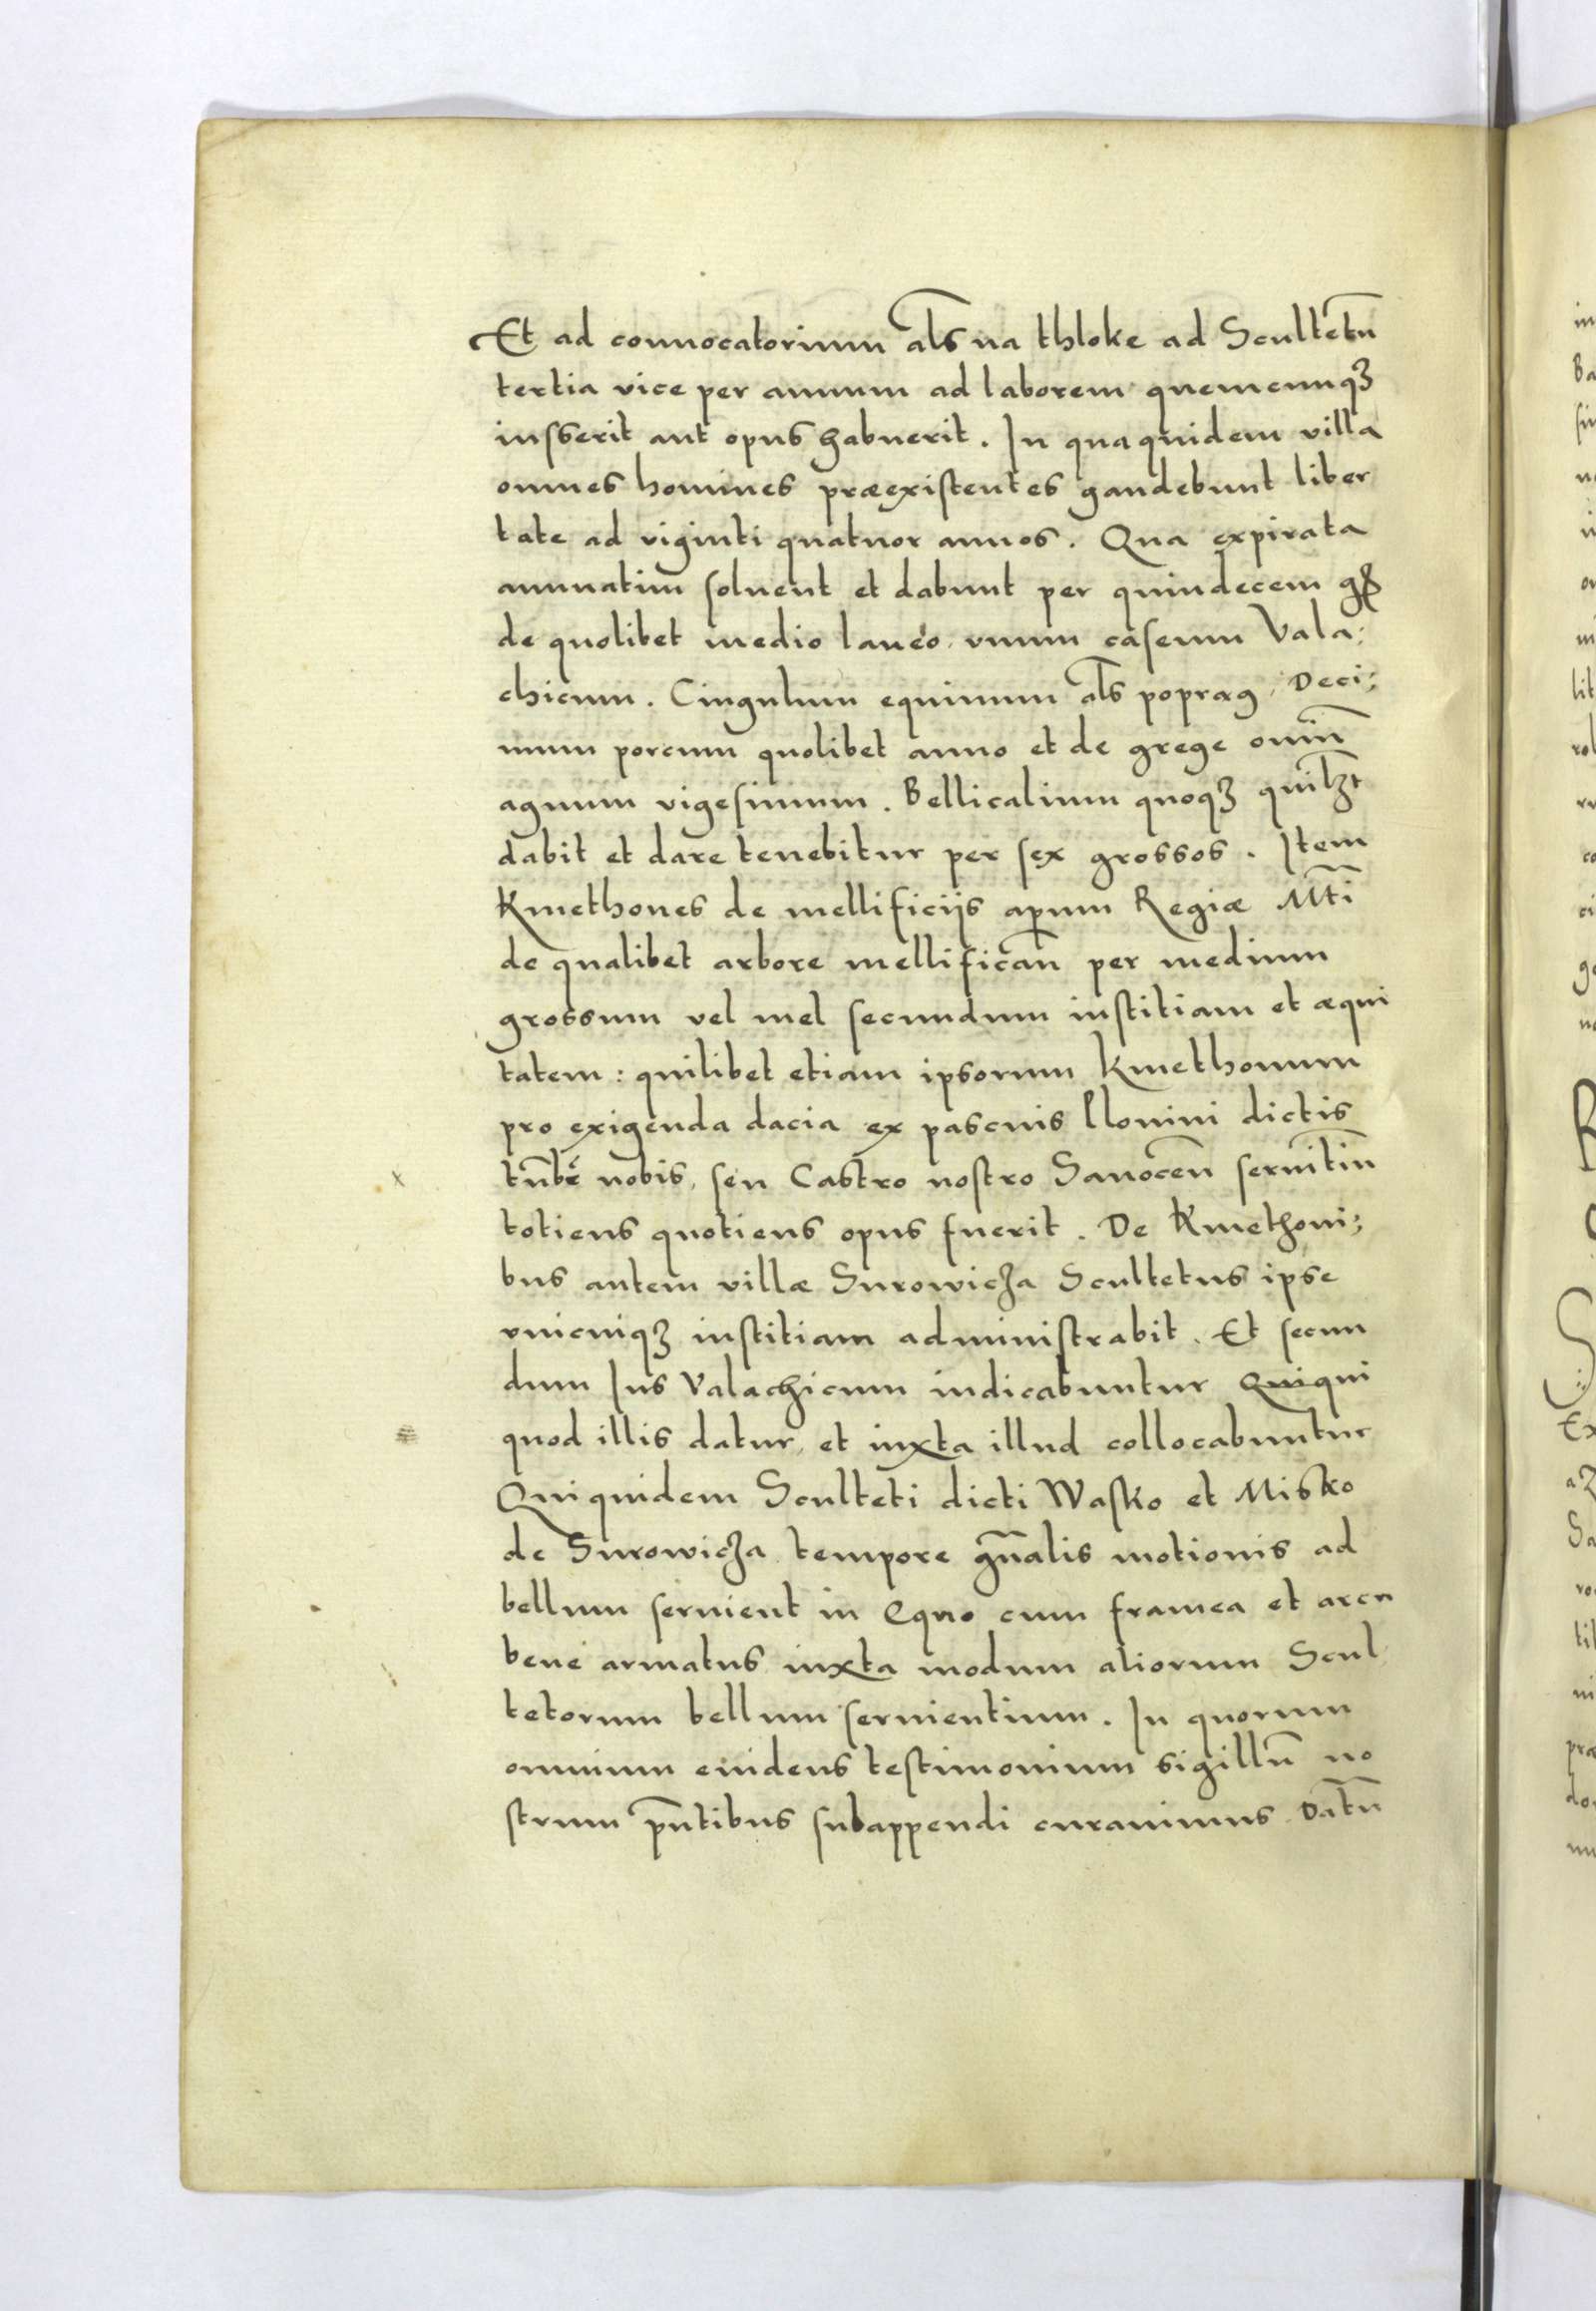 Et ad conuocatorium al̃s na thloke ad Scultetũ
tertia vice per annum ad laborem quemcunqꝫ
iusserit aut opus habuerit. In qua quidem villa
omnes homines præexistentes gaudebunt liber
tate ad viginti quatuor annos. Qua expirata
annuatim soluent et dabunt per quindecem gꝶ
de quolibet medio laneo, vnum caseum Vala;
chicum. Cingulum equinum al̃s poprag, Deci;
mum porcum quolibet anno et de grege ouiũ
agnum vigesimum. Bellicalium quoqꝫ quilꝫt
dabit et dare tenebitur per sex grossos. Item
Kmethones de mellificijs apum Regiæ Mt̃i
de qualibet arbore mellifican̄ per medium
grossum vel mel secundum iustitiam et æqui
tatem: quilibet etiam ipsorum Kmethonum
pro exigenda dacia ex pascuis dictis
nobis, seu Castro nostro Sanocen̄ seruitiũ
totiens quotiens opus fuerit. De Kmethoni;
bus autem villæ Surowicza Scultetus ipse
vnicuiqꝫ iustitiam administrabit. Et secun
dum Jus Valachicum iudicabuntur Quiqui
quod illis datur, et iuxta illud collocabuntur
Qui quidem Sculteti dicti Wasko et Misko
de Surowicza tempore gñalis motionis ad
bellum seruient in equo cum framea et arcu
bene armatus iuxta modum aliorum Scul
tetorum bellum seruientium. In quorum
omnium euidens testimonium sigillũ no
strum pñtibus subappendi curauimus Datũ